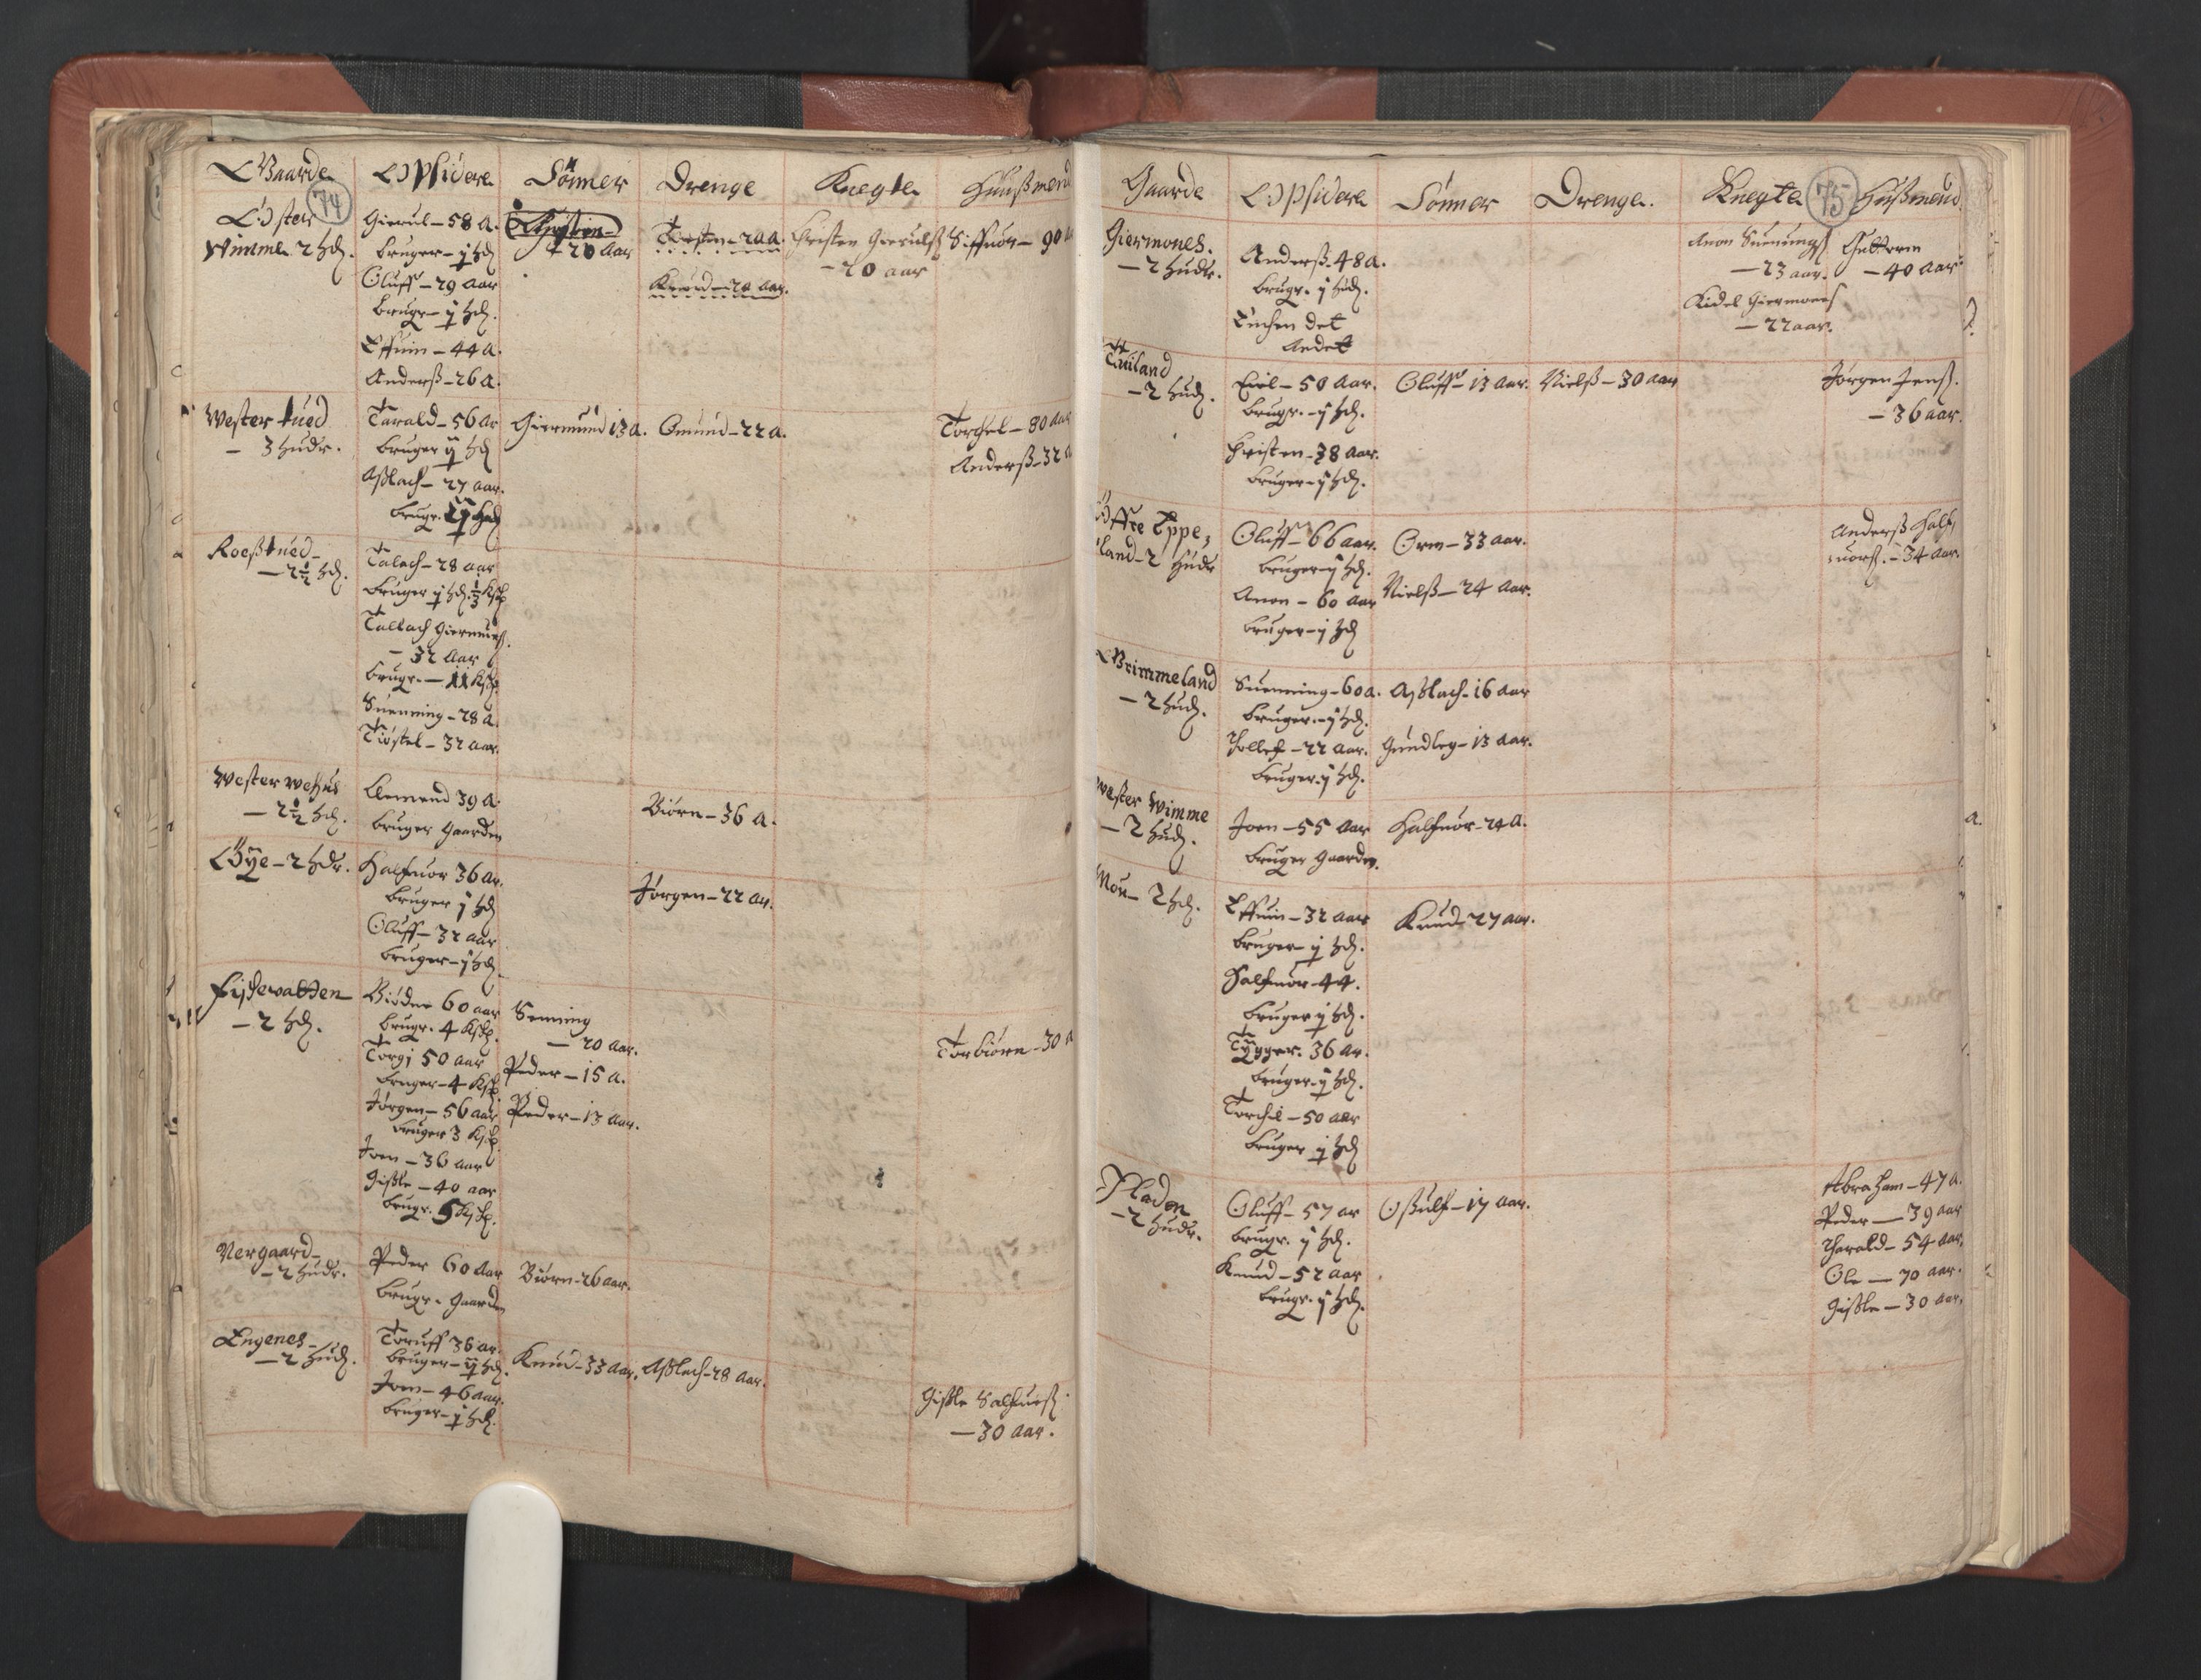 Gaarde
Opsidere
Sönner
Drenge
Knegte
Huußmend
74
Öster
Wimme 2 hd.
Gierul - 58 a.
bruger - j hd
Oluff - 29 aar
brugr - j hd.
Effuin - 44 a.
Anderß - 26 a.
Christen
20 aar
Torsten - 20 a.
Knud - 20 aar.
Christen Gierulß
- 20 aar
Siffuor - 90
Wester tued
- 3 hudr.
Tarald - 56 ar
bruger ij hd
Aßlach - 27 aar.
brugr. ij hd
Giermund 13 a.
Omund - 22 a.
Torchel - 80 aar
Anderß - 32 a
Roeßtued -
- 2 1/2 hd.
Talach - 28 aar
bruger j hd.
Tallach Giermunß.
- 32 aar
brugr. - 11 Kß
Suenning - 28 a.
Tiöstel - 32 aar
Wester Wehus
- 2 1/2 hd.
Clemend 39 a.
bruger Gaarden
Biörn - 36 a.
Öÿe - 2 hdr.
Halfuor 36 ar.
bruger j hd
Oluff - 32 aar
bruger - j hd
Jörgen - 22 ar.
Eigewatten
- 2 hd.
Biöden 60 aar
brugr. 4 Kß.
Torgj 50 aar
bruger - 4 Kß.
Jörgen - 56 aar
bruger 3 Kß.
Joen - 36 aar
Gißle - 40 aar
brugr. 5 Kß.
Senning
- 20 aar.
Peder - 15 a.
Peder - 13 aar.
Torbiörn - 30 a
Nergaard -
- 2 hudr.
Peder 60 aar
brugr. Gaarden
Biörn - 26 aar.
Engenes -
- 2 hud.
Toruff 36 ar.
bruger - ij hd.
Joen - 46 aar.
bruger - j hd.
Knud - 33 aar.
Aßlach - 28 aar.
Gißle Salfuerß
- 30 aar.
Gaarde
Opsidere
Sönner
Drenge.
Knegte
75
Hußmend
Giermones.
- 2 hudr.
Anderß - 48 a.
brugr. j hud.
Enchen det
Andet
Anon Suenungß
- 23 aar.
Kidel Giermonß
- 22 aar.
Guttorm
- 40 aar
Tuiland
- 2 hud.
Eiel - 50 aar.
brugr. - j hd.
Christen - 38 aar.
bruger - j hd.
Oluff - 13 aar.
Nielß - 30 aar
Jörgen Jenß.
- 36 aar.
Öffre Eppe,
land - 2 hudr
Oluff - 66 aar.
bruger - j hd.
Anon - 60 aar
bruger - j hd
Orm - 33 aar.
Nielß - 24 aar.
Anderß Half,
uorß. - 34 aar.
Grimmeland
- 2 hud.
Suenning - 60 a.
bruger. - j hd.
Thollef - 22 aar.
bruger. j hd.
Aßlach - 16 aar
Gundleg - 13 aar.
Wester Wimme
- 2 hud.
Joen - 55 aar
bruger Gaarden.
Halfuor - 24 a.
Mou - 2 hd.
Effuin - 32 aar
bruger - j hd.
Halfuor - 44.
bruger j hd.
Tÿgger. 36 ar.
bruger - j hd.
Torchil - 50 aar
bruger j hd
Knud - 27 aar.
Pladen
- 2 hudr.
Oluff - 57 ar
brugr. j hd.
Knud - 52 aar
brugr. j hd.
Oßulf - 17 aar.
Abraham - 47 a.
Peder - 39 aar
Tharald - 54 aar,
Ole - 70 aar.
Gißle - 30 aar,